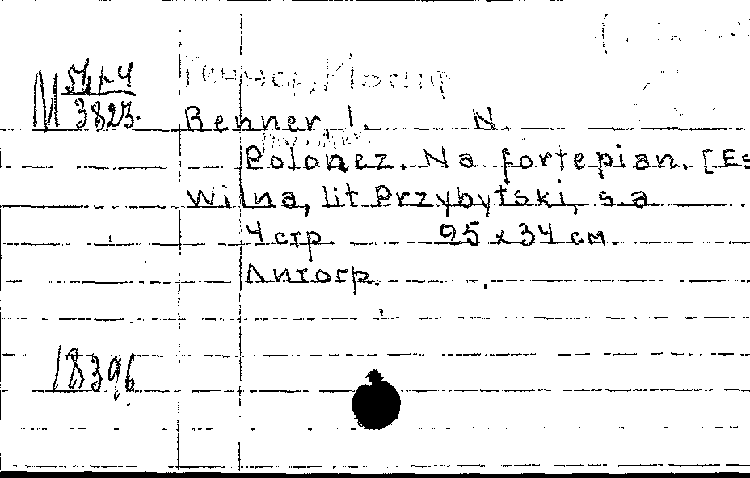 М 3823.
Renner, I. N.
Polonez. Na fortepian. [Es
Wilna, lit Przybytski, s.a
4 стр 25 x 34 см.
Литогр.
18396